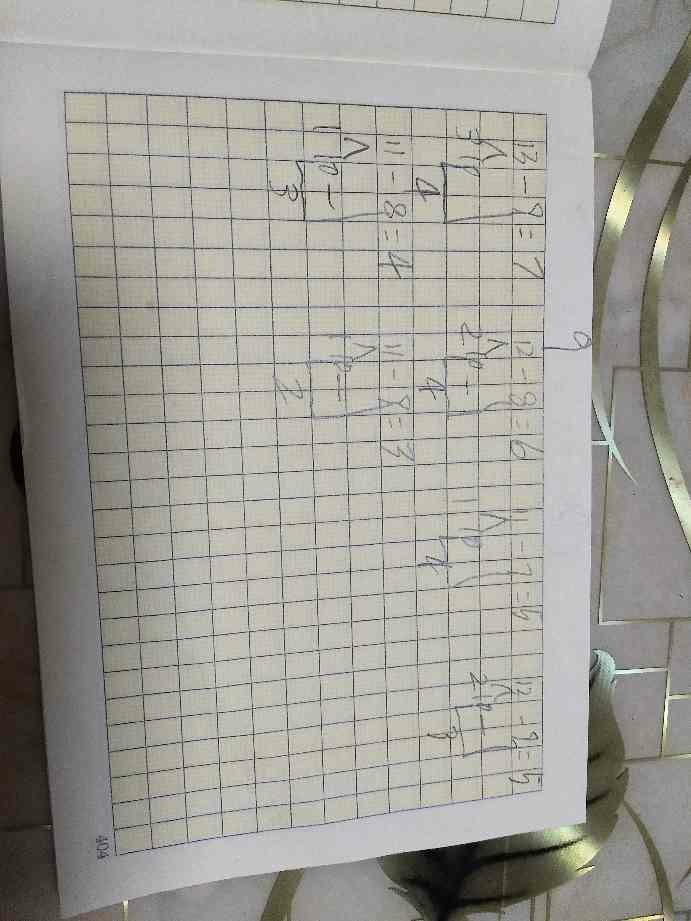 9
13-9=7 12-8=6 11-7=5 12-9=5
3 10 - 2 10 - 1 10 2 10 -
4 4 4 3
11-8=4 11-8=3
1 10 - 1 10 -
3 2
404